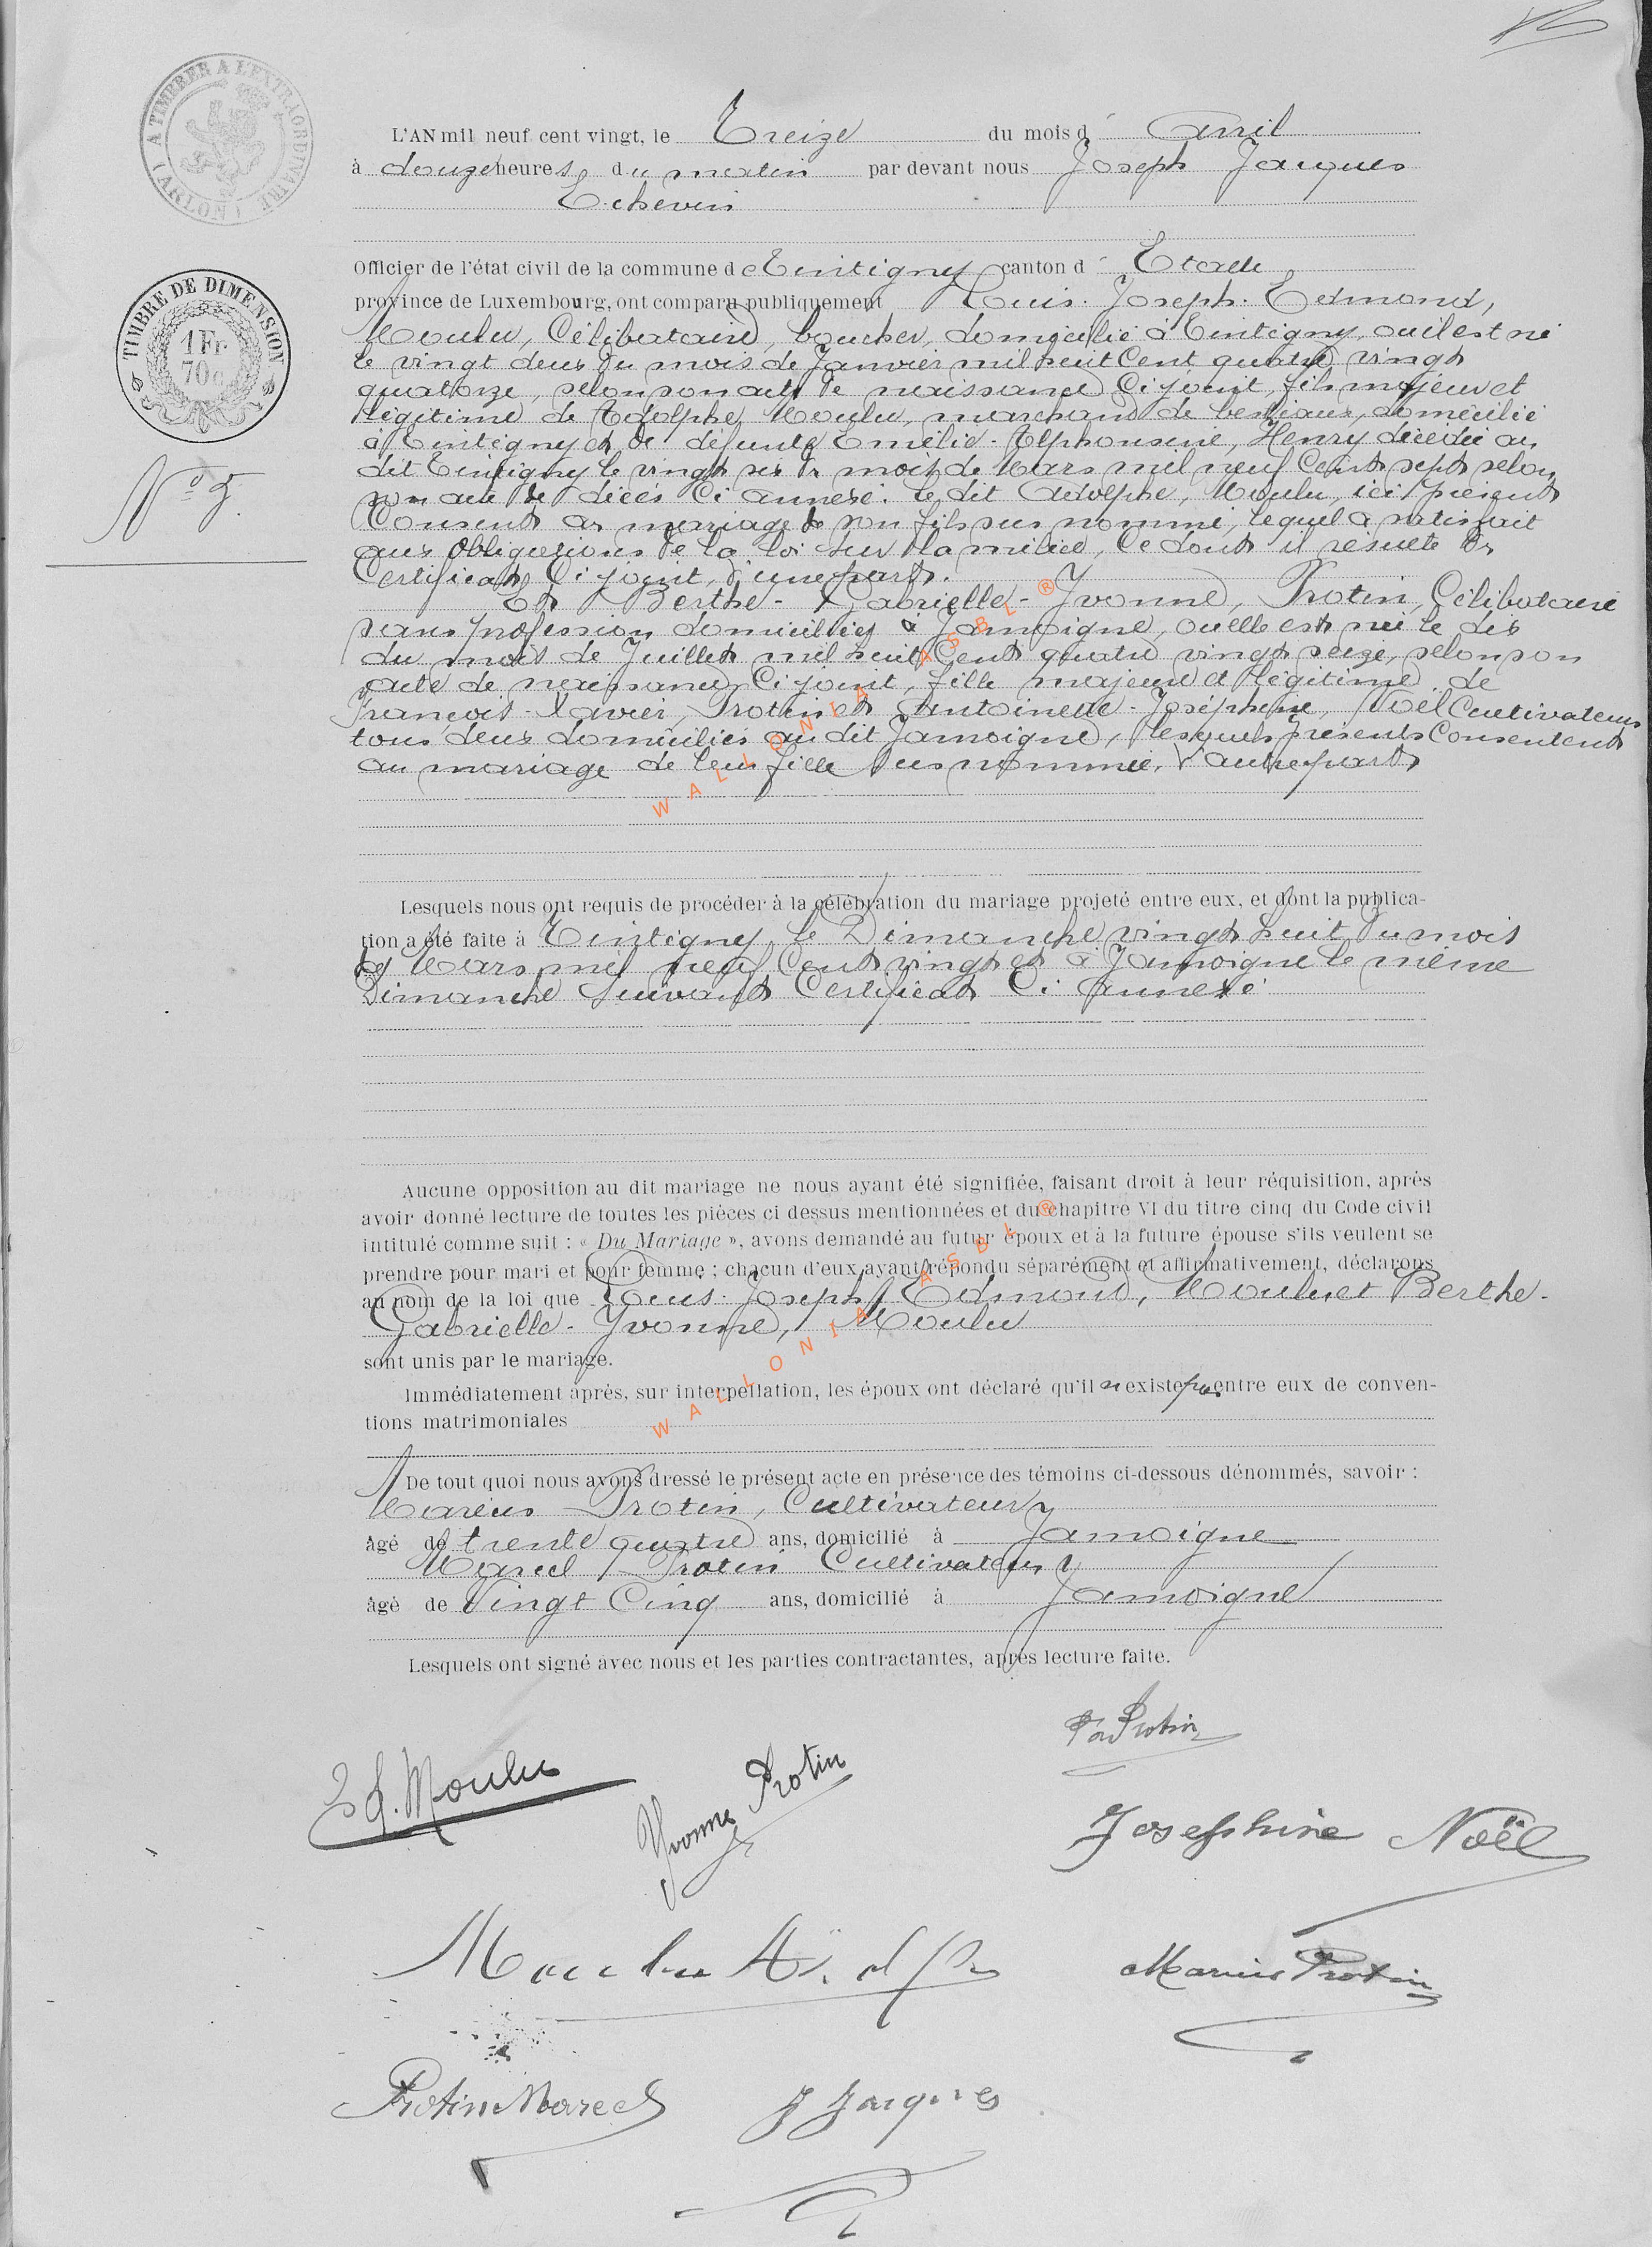 A TIMBRER A L'EXTRAORDINAIRE
( ARLON )
L'AN mil neuf cent vingt, le Treize du mois d' Avril
à douze heures, du matin par devant nous Joseph Jacques
Echevin
Officier de l'état civil de la commune de Tintigny canton d' Etalle
province de Luxembourg, ont comparu publiquement Louis-Joseph-Edmond,
TIMBRE DE DIMENSION
1 Fr
70 c
Moulu, Célibataire, boucher, domicilié à Tintigny, où il est né
le vingt deux du mois de Janvier mil huit Cent quatre vingt
quatorze, selon son acte de naissance Ci joint, fils majeur et
légitime de Adolphe, Moulu, marchand de bestiaux, domicilié
à Tintigny et de défunte Emélie-Alphonsine, Henry décédée au
dit Tintigny le vingt six du mois de Mars mil neuf Cent sept selon
son acte de décès Ci annexé. Le dit Adolphe, Moulu, ici présent
Consent au mariage de son fils sus nommé, lequel a satisfait
aux Obligations de la loi sur la milice, Ce dont il résulte du
Certificat Ci joint, d'une part.
N° 5.
Et Berthe-Gabrielle-Yvonne, Protin, Célibataire
sans profession domiciliée à Jamoigne, où elle est née le dix
du mois de Juillet mil huit Cent quatre vingt seize, selon son
acte de naissance Ci joint, fille majeure et légitime de
François-Xavier, Protin et Antoinette-Joséphine, Noël Cultivateurs
tous deux domiciliés au dit Jamoigne, lesquels présents Consentent
au mariage de leur fille sus nommée, d'autre part
WALLONIA ASBL ®
Lesquels nous ont requis de procéder à la célébration du mariage projeté entre eux, et dont la publica-
tion a été faite à Tintigny le Dimanche vingt huit du mois
de Mars mil neuf Cent vingt et à Jamoigne le même
Dimanche suivant Certificat Ci annexé
Aucune opposition au dit mariage ne nous ayant été signifiée, faisant droit à leur réquisition, après
avoir donné lecture de toutes les pièces ci dessus mentionnées et du chapitre VI du titre cinq du Code civil
intitulé comme suit : « Du Mariage », avons demandé au futur époux et à la future épouse s'ils veulent se
prendre pour mari et pour femme ; chacun d'eux ayant répondu séparément et affirmativement, déclarons
au nom de la loi que Louis-Joseph-Edmond, Moulu et Berthe-
Gabrielle-Yvonne, Moulu
sont unis par le mariage.
Immédiatement après, sur interpellation, les époux ont déclaré qu'il n'existe pas entre eux de conven-
tions matrimoniales
WALLONIA ASBL ®
De tout quoi nous avons dressé le présent acte en présence des témoins ci-dessous dénommés, savoir :
Marius Protin, Cultivateur
âgé de trente quatre ans, domicilié à Jamoigne
Marcel Protin Cultivateur
âgé de Vingt Cinq ans, domicilié à Jamoigne
Lesquels ont signé avec nous et les parties contractantes, après lecture faite.
Protin
Ed. Moulu
Yvonne Protin
Josephine Noël
Moulu Ad
Marius Protin
Protin Marcel
J Jacques